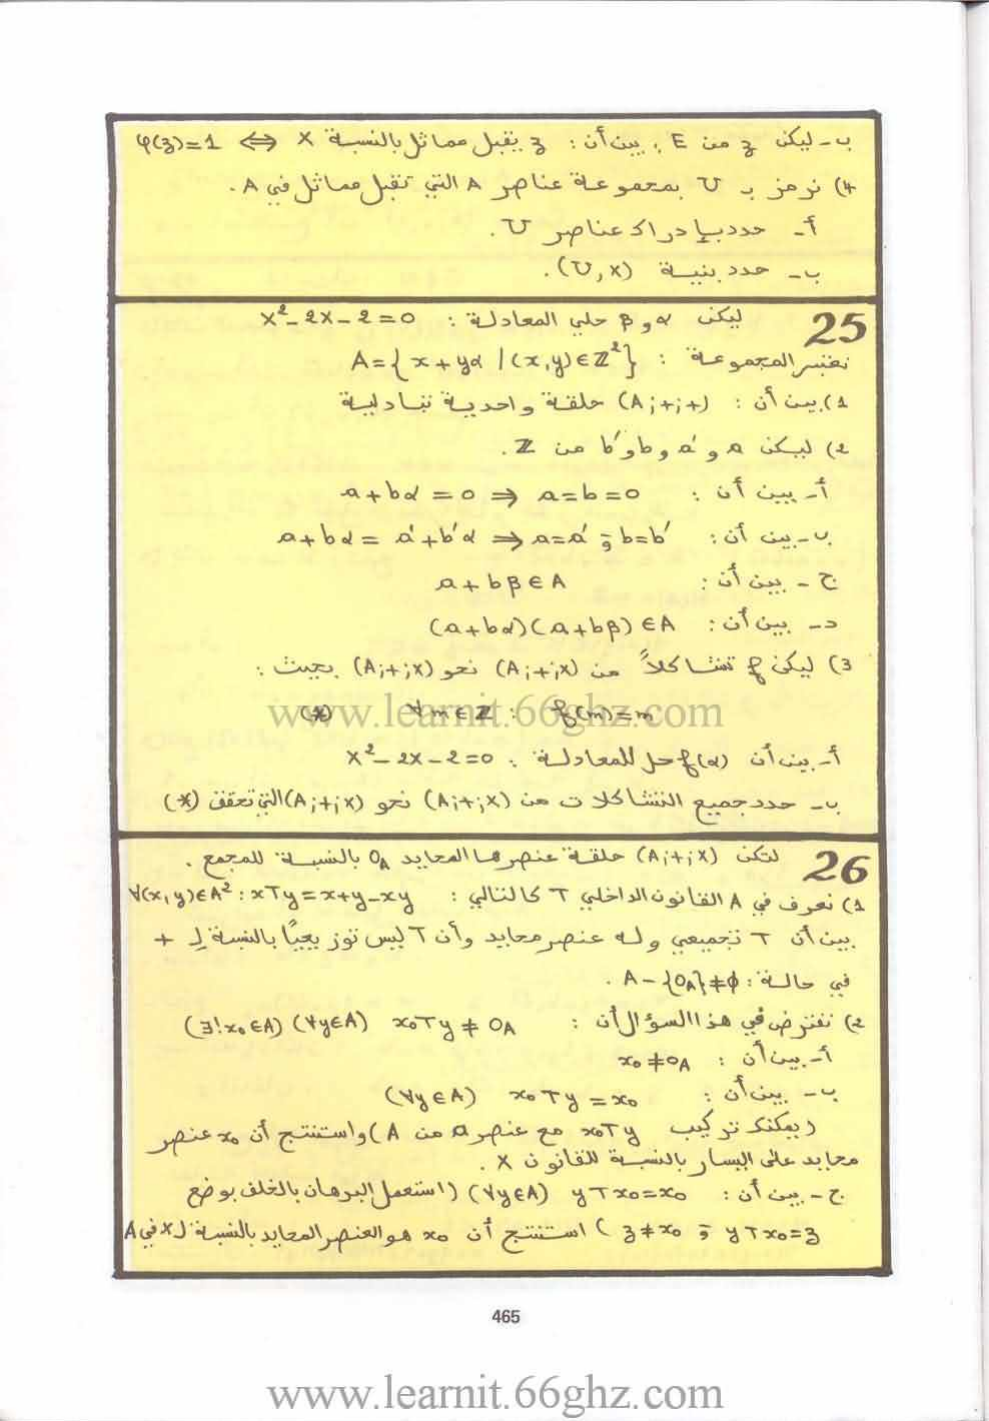 ب- ليكن z من E ، بين أن : z يقبل مماثل بالنسبة x ⇔ φ(z)=1
4) نرمز بـ U بمجموعة عناصر A التي تقبل مماثل في A .
أ- حدد بإدراك عناصر U .
ب- حدد بنية (U,x) .
25 ليكن α و β حلي المعادلة : x²-2x-2=0
نعتبر المجموعة : A={x+yα /(x,y)∈ℤ²}
1) بين أن : (A;+;+) حلقة واحدية تبادلية
2) ليكن a و a' و b و b' من ℤ .
أ- بين أن : a+bα=0 ⇒ a=b=0
ب- بين أن : a+bα = a'+b'α ⇒ a=a' و b=b'
ج - بين أن : a+bβ∈A
د- بين أن : (a+bα)(a+bβ)∈A
3) ليكن f تشاكلاً من (A;+;x) نحو (A;+;x) بحيث :
(*) ∀m∈ℤ : f(m)=m
www.learnit.66ghz.com
أ- بين أن f(α) حل للمعادلة : x²-2x-2=0
ب- حدد جميع التشاكلات من (A;+;x) نحو (A;+;x) التي تحقق (*)
26 لتكن (A;+;x) حلقة عنصرها المحايد 0_A بالنسبة للمجمع .
1) نعرف في A القانون الداخلي T كالتالي : ∀(x,y)∈A² : xTy=x+y-xy
بين أن T تجميعي وله عنصر محايد وأن T ليس توزيعيًا بالنسبة لـ +
في حالة : A-{0_A}≠ϕ .
2) نفترض في هذا السؤال أن : (∃!x₀∈A) (∀y∈A) x₀Ty ≠ 0_A
أ- بين أن : x₀≠0_A
ب- بين أن : (∀y∈A) x₀Ty=x₀
(يمكنك تركيب x₀Ty مع عنصر a من A) واستنتج أن x₀ عنصر
محايد على اليسار بالنسبة للقانون x .
ج- بين أن : (∀y∈A) yTx₀=x₀ (استعمل البرهان بالخلف بوضع
yTx₀=z و z≠x₀ ) استنتج أن x₀ هو العنصر المحايد بالنسبة لـ x في A
465
www.learnit.66ghz.com